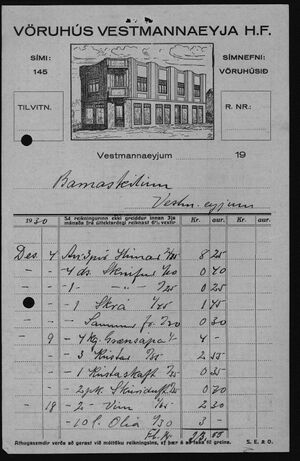 VÖRUHÚS VESTMANNAEYJA H.F.
SÍMI:
145
SÍMNEFNI:
VÖRUHÚSIÐ
TILVITN.
R. NR.:
Vestmannaeyjum 19
Barnaskólinn
Vestm.eyjum
1930 Sé reikningurinn ekki greiddur innan 3ja mánaða frá úttektardegi reiknast 6% vextir. Kr. aur. Kr. aur.
Des 4 8 25
- - 4 ds. Skrúfur 0 40
- - 1 - 0 25
- - 1 Skrá 1 45
- - Saumur 0 20
- 9 4 kg. Grænsápa 4 -
- - 3 Kústar 2 55
- - 1 Kústaskaft 0 35
- - 2 pk. Skúriduft 0 70
- 18 2 - Vim 2 30
- - 10 l. Olía 3 -
Kr.
Athugasemdir verða að gerast við móttöku reikningsins, ef þær á að taka til greina. S. E. & O.